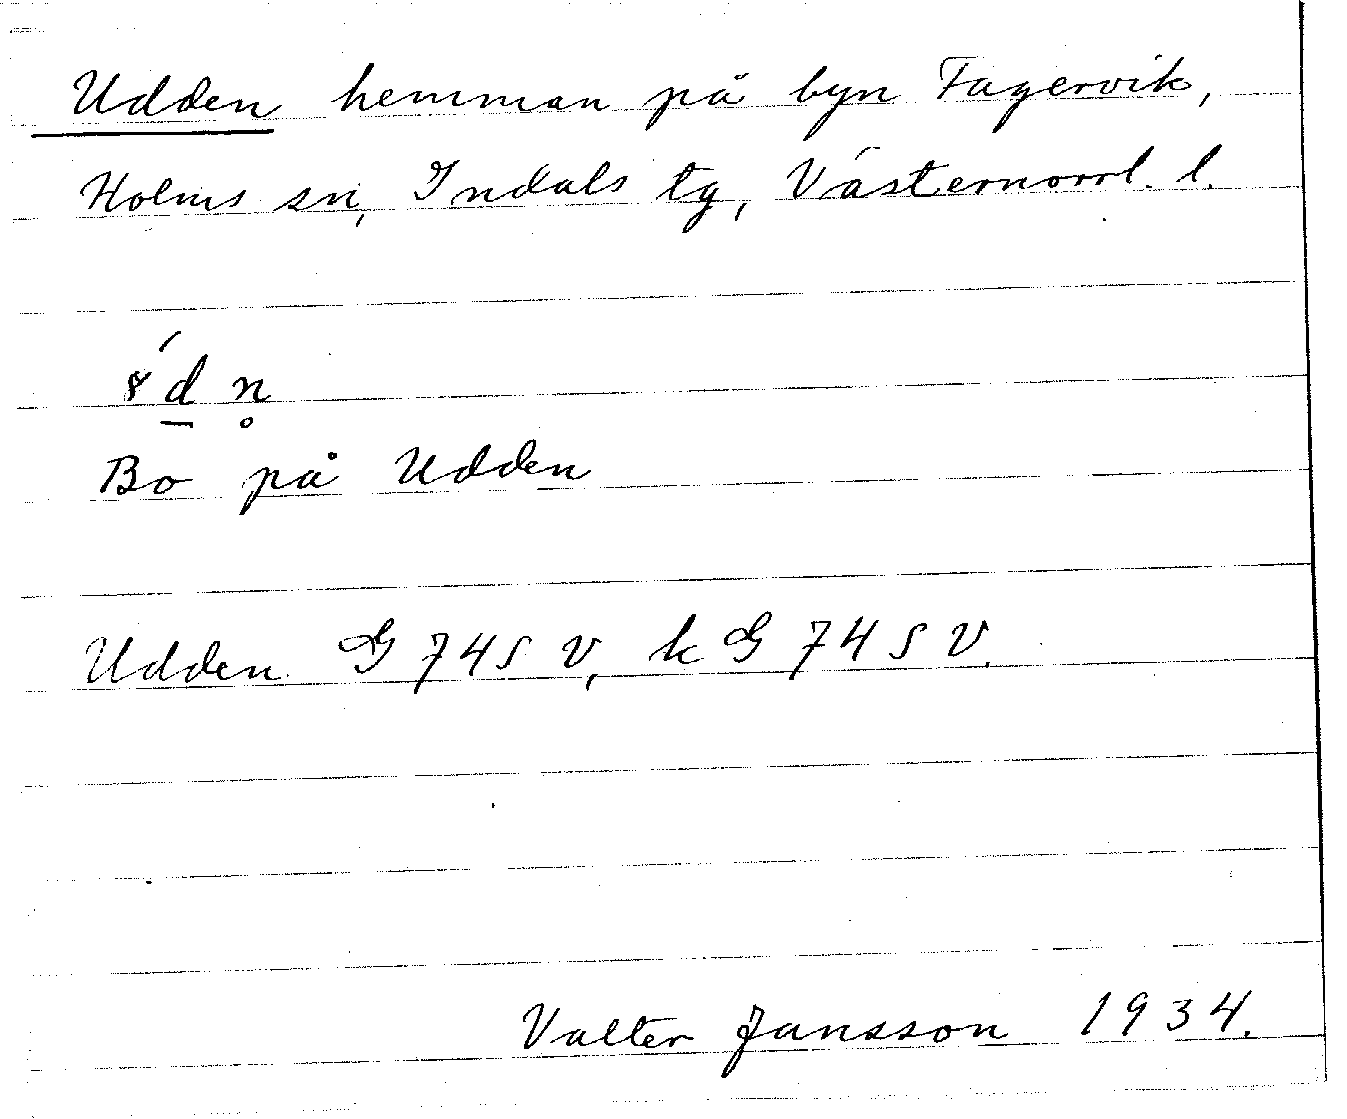 Udden hemman på byn Fagervik,
Holms sn, Indals tg, Västernorrl. l.
Bo på Udden
Udden G 74 S V, k G 74 S V.
Valter Jansson 1934.